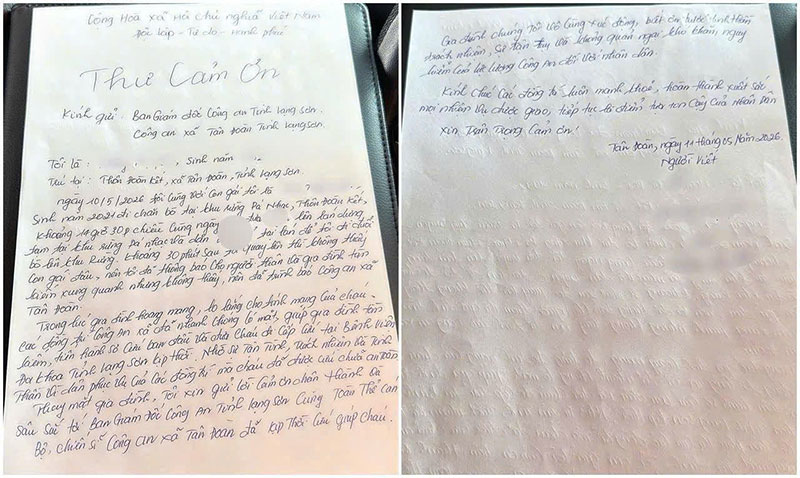 Cộng Hòa xã hội chủ nghĩa Việt Nam
Độc lập - Tự do - Hạnh phúc
Thư Cảm Ơn
Kính gửi: Ban Giám đốc Công an Tỉnh Lạng Sơn.
Công an xã Tân Đoàn Tỉnh Lạng Sơn.
Tôi là: , Sinh năm
Trú tại: Thôn Đoàn Kết, xã Tân Đoàn, Tỉnh Lạng Sơn.
ngày 10/5/2026 tôi cùng với con gái tôi là
Sinh năm 2021 đi chăn bò tại khu rừng Pá Nhạc, Thôn Đoàn Kết,
Khoảng 14 giờ 30p chiều cùng ngày lên lán dừng
tạm tại khu rừng Pá Nhạc và dặn tại lán để tôi đi đuổi
bò lên khu rừng. Khoảng 30 phút sau quay lên thì không thấy
con gái đâu, nên tôi đã thông báo cho người thân và gia đình tìm
kiếm xung quanh nhưng không thấy, nên đã trình báo Công an xã
Tân Đoàn.
Trong lúc gia đình hoang mang, lo lắng cho tính mạng của cháu.
Các đồng chí Công an xã đã nhanh chóng có mặt, giúp gia đình tìm
kiếm, tiến hành sơ cứu ban đầu và đưa cháu đi cấp cứu tại Bệnh viện
Đa khoa Tỉnh Lạng Sơn kịp thời. Nhờ sự tận tình, trách nhiệm và tinh
thần vì dân phục vụ của các đồng chí mà cháu đã được cứu chữa an toàn.
Thay mặt gia đình, tôi xin gửi lời cảm ơn chân thành và
sâu sắc tới Ban Giám Đốc Công An Tỉnh Lạng Sơn cùng toàn thể cán
Bộ, chiến sĩ Công an xã Tân Đoàn đã kịp thời cứu giúp cháu.
Gia đình chúng tôi vô cùng xúc động, biết ơn trước tinh thần
trách nhiệm, sự tận tụy và không quản ngại khó khăn, nguy
hiểm của lực lượng Công an đối với nhân dân.
Kính chúc các đồng chí luôn mạnh khoẻ, hoàn thành xuất sắc
mọi nhiệm vụ được giao, tiếp tục là điểm tựa tin cậy của nhân dân
xin Trân Trọng cảm ơn!
Tân Đoàn, ngày 11 tháng 05 năm 2026
Người viết